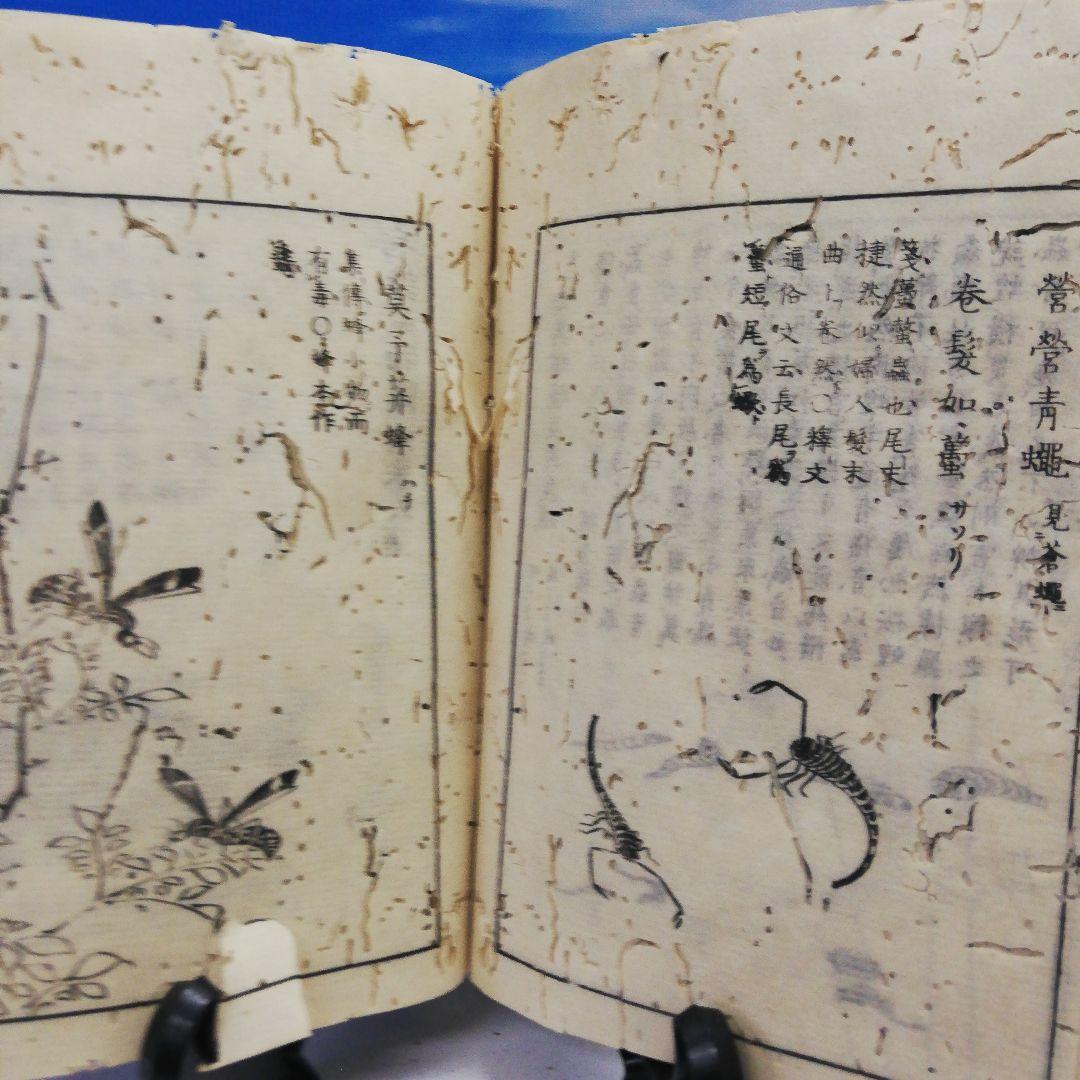 營營青蠅 見蒼蠅
卷髮如蠆 サソリ
箋蠆螫蟲也尾末
捷然似婦人髮末
曲上卷然○釋文
通俗文云長尾ヲ為
蠆短尾ヲ為
莫予荓蜂 ハチ
集傳蜂小物而
有毒○蜂本作